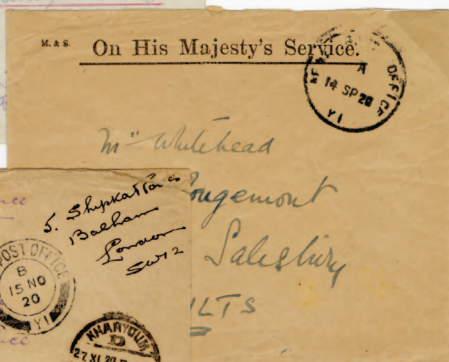 M. & S. On His Majesty's Service.
OFFICE
A
14 SP 20
Y1
Mrs Whitehead
ougemont
Salisbury
ILTS
5. Shipka
Balham
London
SW12
POST OFFICE
B
15 NO
20
Y1
KHARTOUM
D
27 XI 20